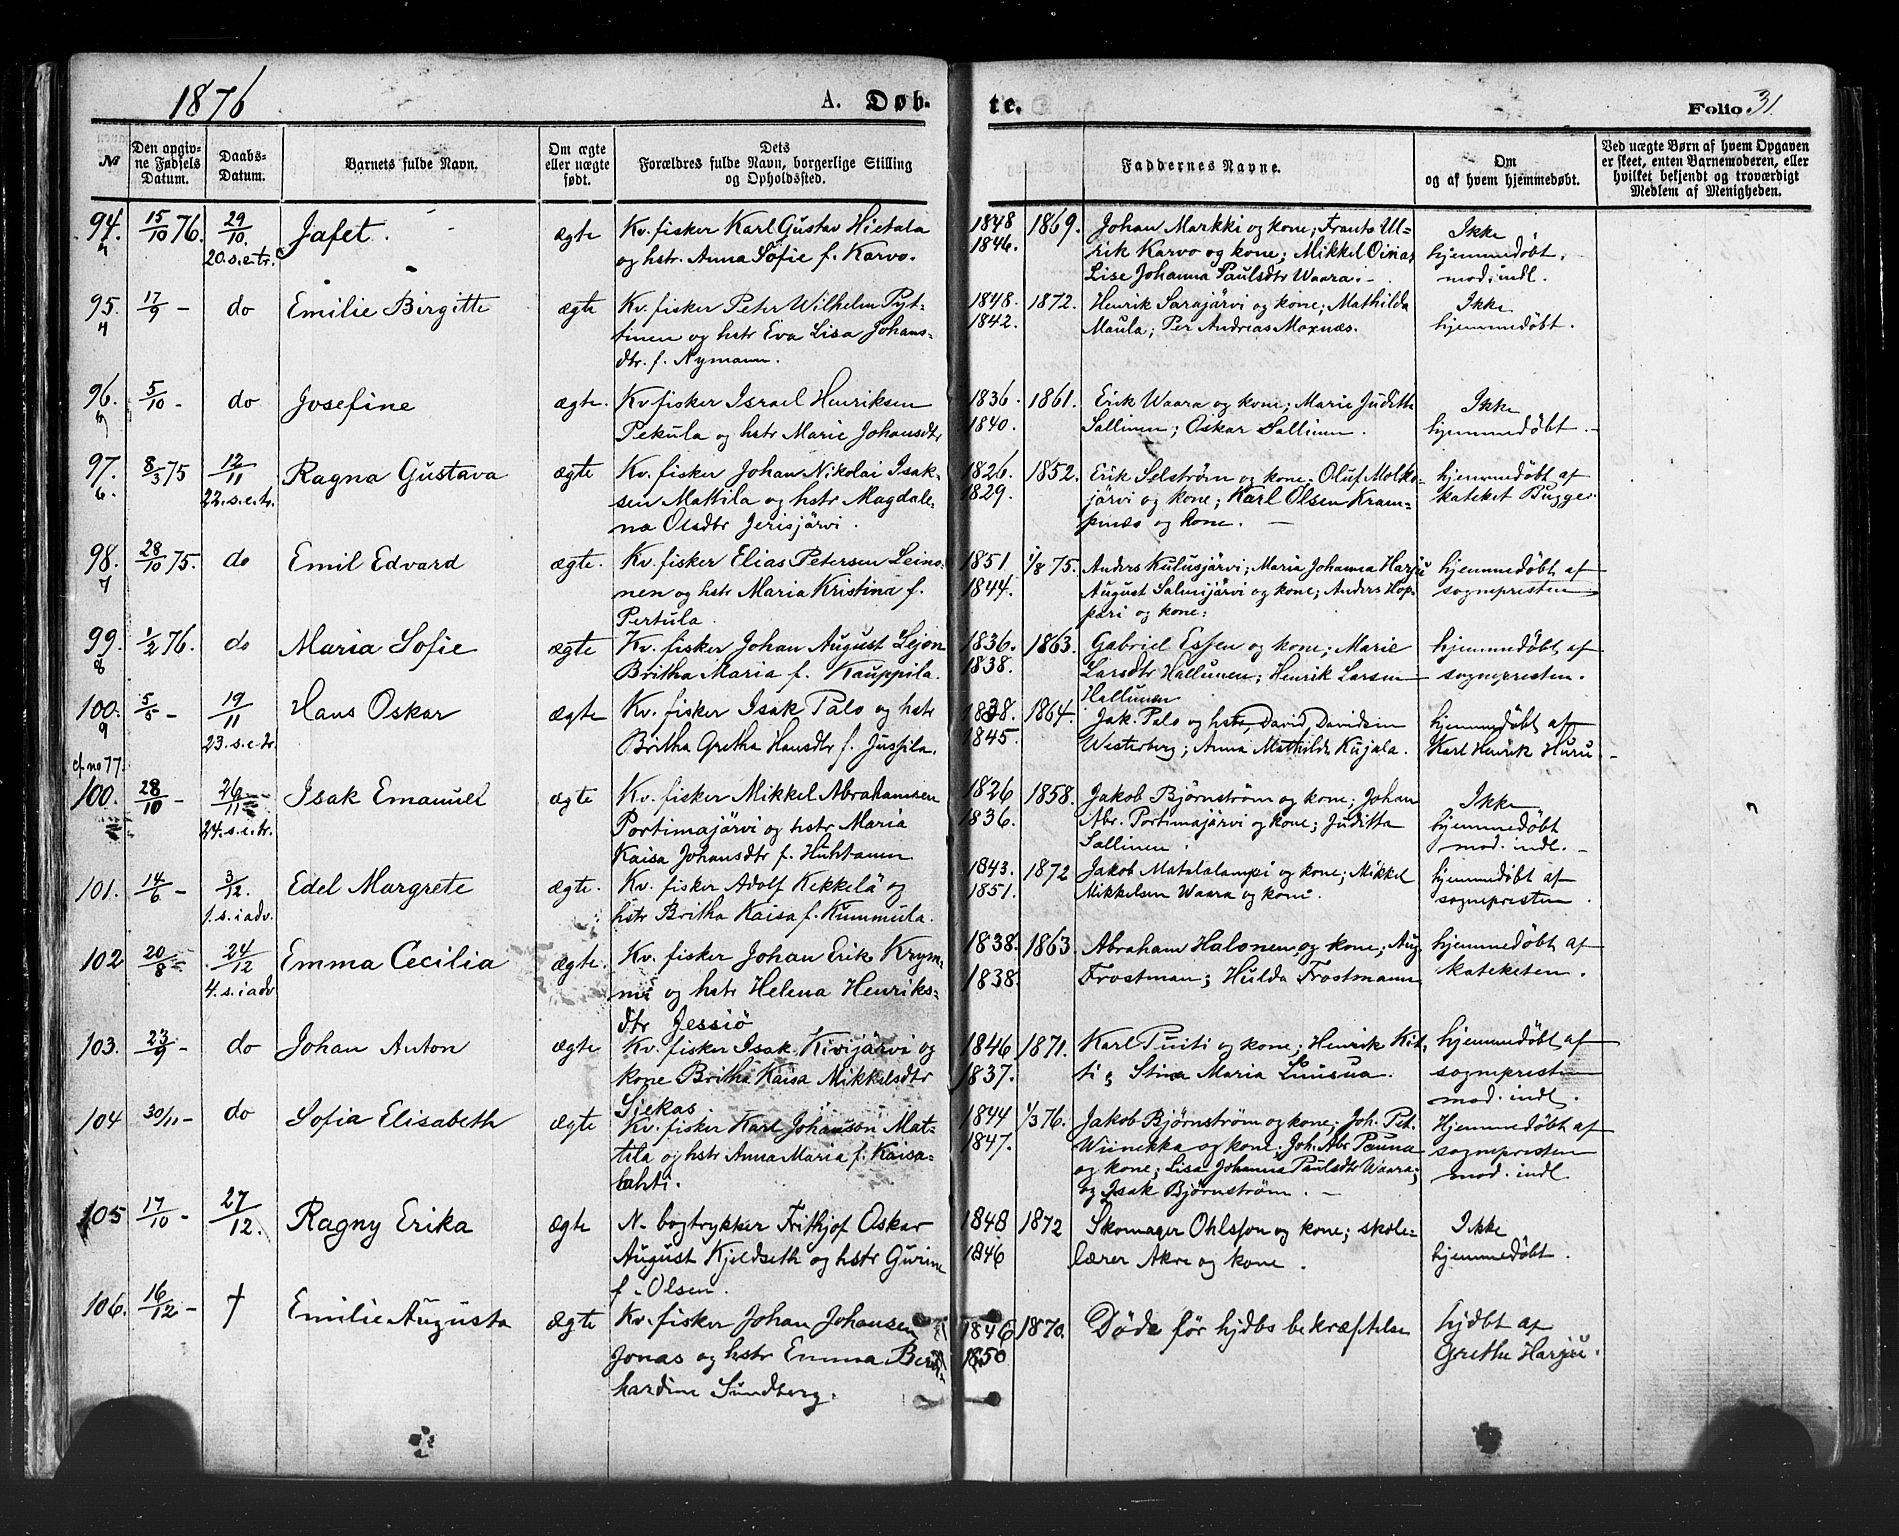 1876
A. Døb-
te.
Folio 31.
№
Den opgiv-
ne Fødsels
Datum.
Daabs-
Datum.
Barnets fulde Navn.
Om ægte
eller uægte
født.
Dets
Forældres fulde Navn, borgerlige Stilling
og Opholdssted.
Faddernes Navne.
Om
og af hvem hjemmedøbt.
Ved uægte Børn af hvem Opgaven
er skeet, enten Barnemoderen, eller
hvilket bekjendt og troværdigt
Medlem af Menigheden.
94. 15/10 76. 29/10. 20.s.e.tr. Jafet. ægte
Kv. fisker Karl Gustav Hietala
og hstr. Anna Sofie f. Karvo.
1848 1869.
1846.
Johan Markki og kone; Frants Ul-
rik Karvo og kone; Mikkel Oinas
Lise Johanna Paulsdtr Waara.
Ikke
hjemmedøbt.
mod. indl.
95. 17/9 - do Emilie Birgitte ægte
Kv. fisker Peter Wilhelm Pyt-
tinen og hstr Eva Lisa Johans-
dtr. f. Nymann.
1848. 1872.
1842.
Henrik Sarajärvi og kone; Mathilda
Maula; Per Andreas Moxnæs.
Ikke
hjemmedøbt.
96. 5/10 - do Josefine ægte.
Kv fisker Israel Henriksen
Pekula og hstr Marie Johansdtr
1836. 1861.
1840.
Erik Waara og kone; Marie Judith
Sallinen; Oskar Sallinen.
Ikke
hjemmedøbt.
97. 8/3 75 12/11 22.s.e.tr. Ragna Gustava ægte
Kv. fisker Johan Nikolai Isak-
sen Mattila og hstr Magdale-
na Olsdtr Jerisjärvi.
1826. 1852.
1829.
Erik Selström og kone; Oluf Molko-
järvi og kone; Karl Olsen Kram-
pnæs og kone.
hjemmedøbt af
kateket Bugge.
98. 28/10 75. do Emil Edvard ægte.
Kv. fisker Elias Petersen Leino-
nen og hstr Maria Kristina f.
Pertula.
1851. 1/8 75.
1844.
Anders Kulusjärvi; Maria Johanna Harju
August Salmijärvi og kone; Anders Hop-
pari og kone.
hjemmedøbt af
sognepresten
99. 1/2 76. do Maria Sofie ægte
Kv. fisker Johan August Lejon
Britha Maria f. Kauppila.
1836. 1863.
1838.
Gabriel Essen og kone; Marie
Larsdtr Hallunen; Henrik Larsen
Hallunen
hjemmedøbt af
sognepresten.
100. 5/5 - 19/11 23.s.e.tr. Hans Oskar ægte
Kv. fisker Isak Palo og hstr
Britha Gretha Hansdtr f. Juspila.
1838. 1864.
1845.
Jak. Palo og hstr, David Davidsen
Westerberg; Anna Mathilde Kujala.
hjemmedøbt af
Karl Henrik Huru
cf no 77.
100. 28/10 - 26/11 24.s.e.tr. Isak Emanuel ægte
Kv. fisker Mikkel Abrahamsen
Portimajärvi og hstr Maria
Kaisa Johansdtr f. Huhtanen
1826 1858.
1836.
Jakob Bjørnstrøm og kone; Johan
Abr. Portimajärvi og kone; Juditta
Sallinen.
Ikke
hjemmedøbt
mod. indl.
101. 14/6 - 3/12. 1.s.i adv. Edel Margrete ægte.
Kv. fisker Adolf Kekkelä og
hstr Britha Kaisa f. Kummula.
1843. 1872
1851.
Jakob Matalalampi og kone; Mikkel
Mikkelsen Waara og kone.
hjemmedøbt af
sognepresten.
102 20/8 24/12 4.s.i adv Emma Cecilia ægte.
Kv. fisker Johan Erik Krym-
mi og hstr Helena Henriks-
dtr Jessiö
1838. 1863.
1838.
Abraham Halonen og kone; Aug.
Frostman; Hulda Frostmann
hjemmedøbt af
kateketen.
103. 23/9 - do Johan Anton ægte
Kv. fisker Isak Kivijärvi og
kone Britha Kaisa Mikkelsdtr
Siekas
1846 1871.
1837.
Karl Puiti og kone; Henrik Kit-
ti; Stina Maria Luusua.
hjemmedøbt af
sognepresten
mod. indl.
104 30/11 - do Sofia Elisabeth ægte
Kv. fisker Karl Johanson Mat-
tila og hstr Anna Maria f. Kaisa-
lahti.
1844 1/3 76.
1847.
Jakob Bjørnstrøm og kone; Joh. Pet.
Wiinikka og kone; Joh. Abr Pauna
og kone; Lisa Johanna Paulsdtr Waara;
og Isak Bjørnstrøm.
Hjemmedøbt af
sognepresten
mod. indl
105 17/10 - 27/12. Ragny Erika ægte
N. bogtrykker Frithjof Oskar
August Kjeldseth og hstr Gurine
f. Olsen.
1848 1872
1846
Skomager Ohlsson og kone; skole-
lærer Akre og kone.
Ikke
hjemmedøbt.
106. 16/12 - † Emilie Augusta ægte
Kv. fisker Johan Johansen
Jonas og hstr Emma Bern-
hardine Sundberg.
1846 1870.
1850
Døde før hjdbs bekræftelse
hjdbt af
Grethe Harju.